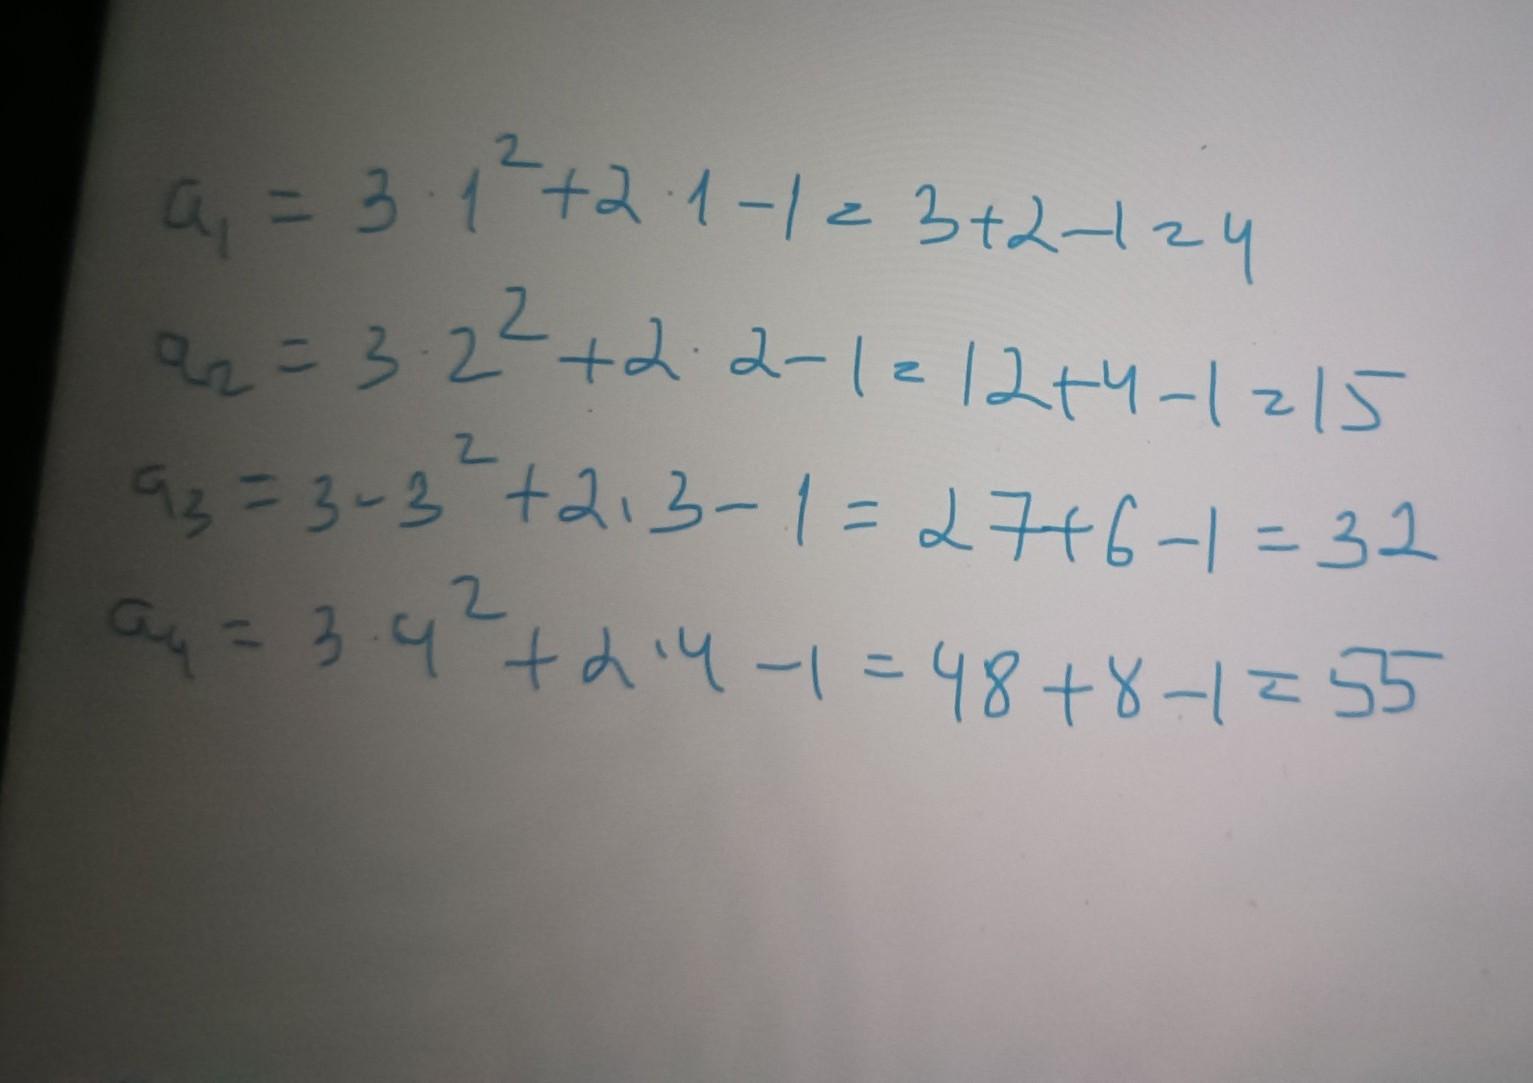 a₁ = 3·1²+2·1-1=3+2-1=4
a₂ = 3·2²+2·2-1=12+4-1=15
a₃ = 3·3²+2·3-1=27+6-1=32
a₄ = 3·4²+2·4-1=48+8-1=55